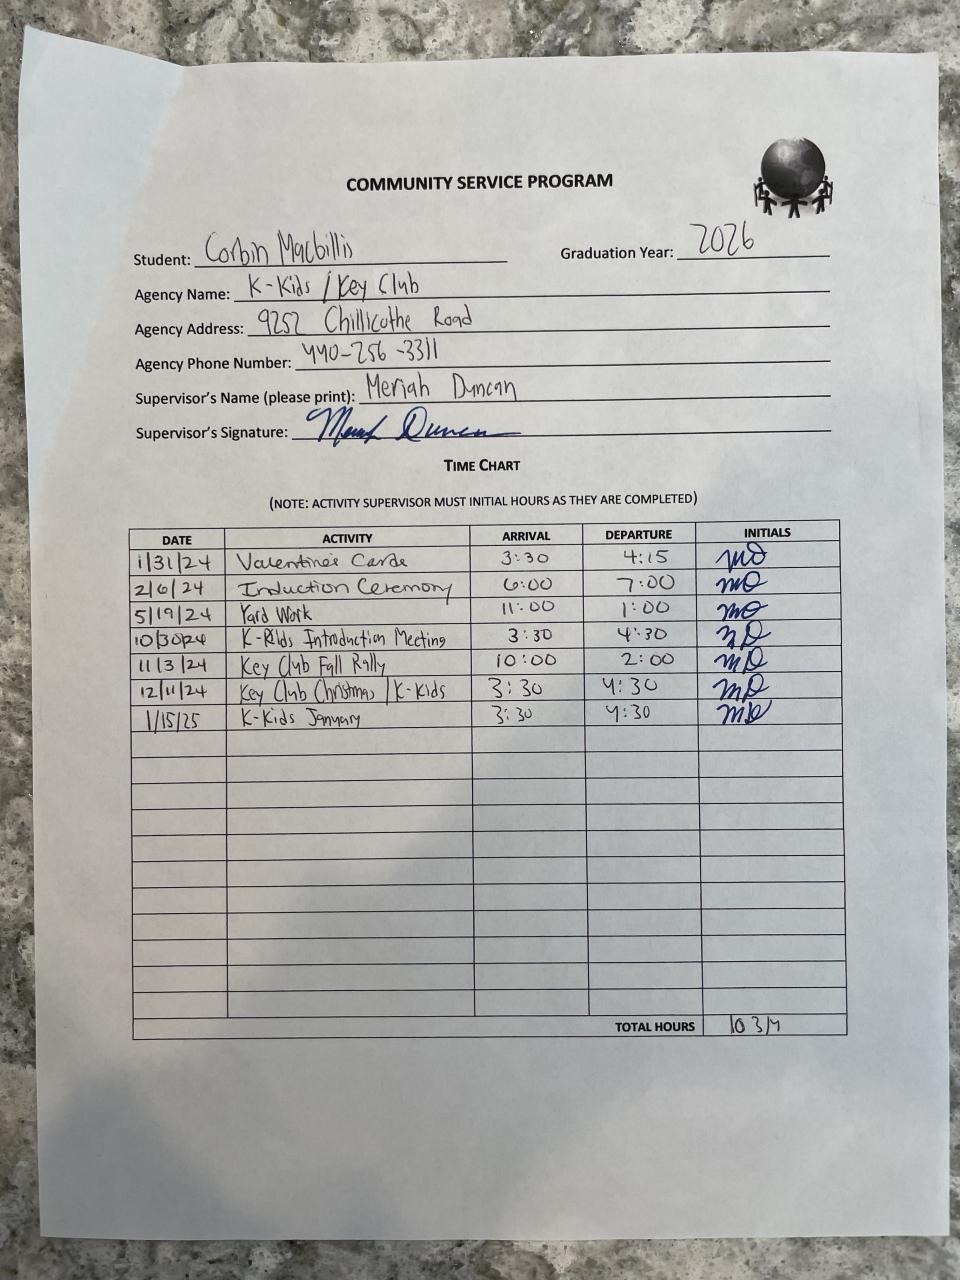 COMMUNITY SERVICE PROGRAM
Student: Corbin Macbillis Graduation Year: 2026
Agency Name: K-Kids / Key Club
Agency Address: 9252 Chillicothe Road
Agency Phone Number: 440-256-3311
Supervisor's Name (please print): Meriah Duncan
Supervisor's Signature: Meriah Duncan
TIME CHART
(NOTE: ACTIVITY SUPERVISOR MUST INITIAL HOURS AS THEY ARE COMPLETED)
DATE ACTIVITY ARRIVAL DEPARTURE INITIALS
1/31/24 Valentine's Cards 3:30 4:15 MD
2/6/24 Induction Ceremony 6:00 7:00 MD
5/19/24 Yard Work 11:00 1:00 MD
10/30/24 K-Kids Introduction Meeting 3:30 4:30 MD
11/3/24 Key Club Fall Rally 10:00 2:00 MD
12/11/24 Key Club Christmas / K-Kids 3:30 4:30 MD
1/15/25 K-Kids January 3:30 4:30 MD
TOTAL HOURS 10 3/4